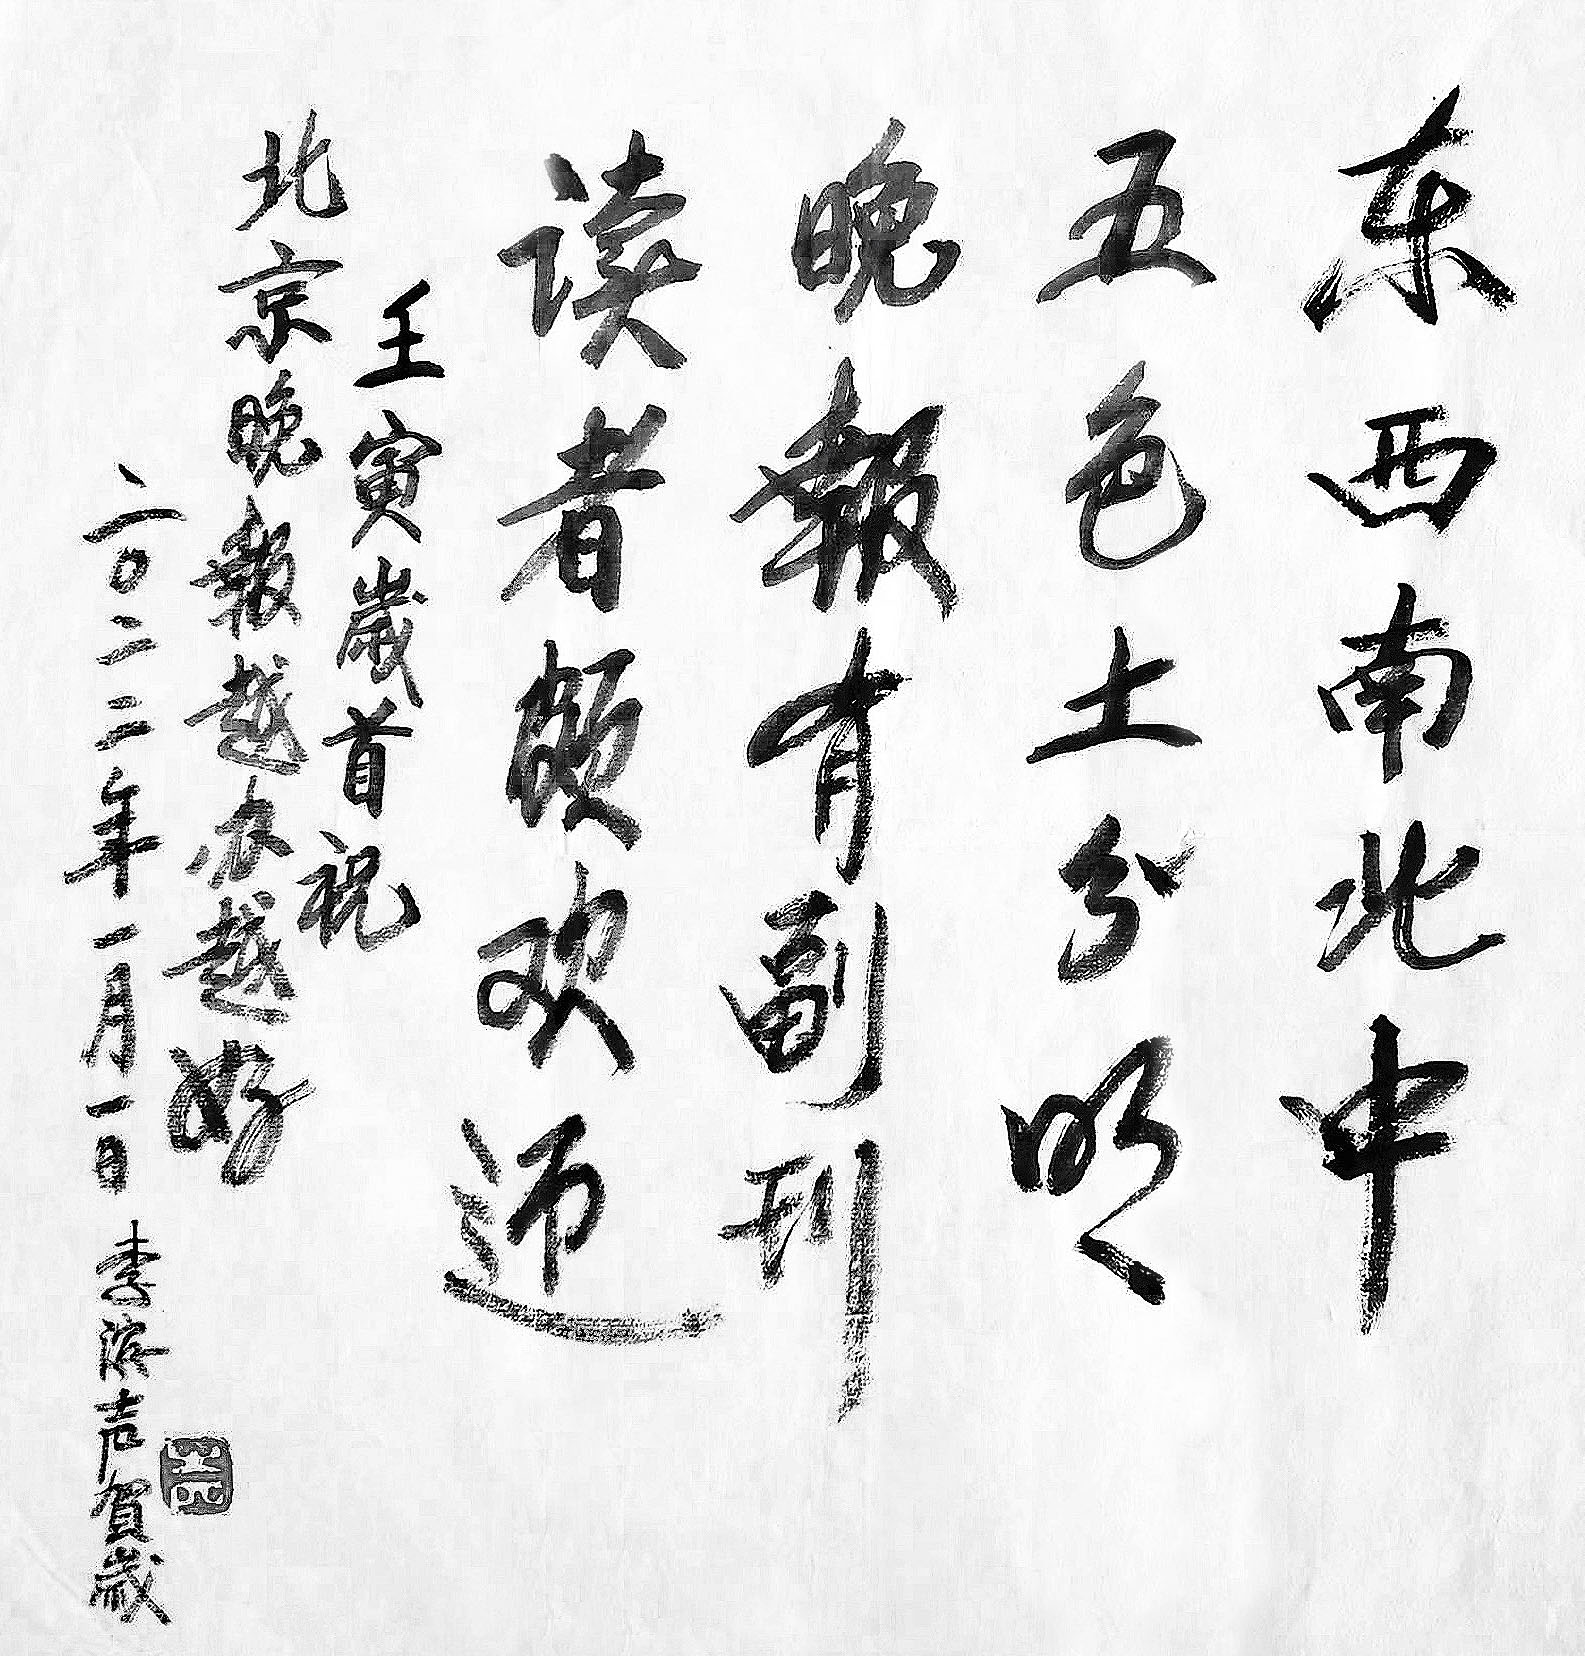 东西南北中
五色土分明
晚報有副刊
读者颇欢迎
壬寅歲首祝
北京晚報越办越好
二〇二二年一月一日 李滨声賀歲